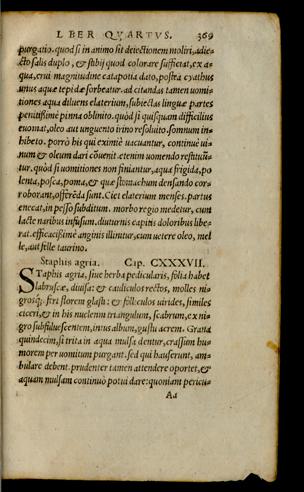 LIBER QVARTVS. 369
purgatio. quod si in animo sit deiectionem moliri, adie=
cto salis duplo, & stibij quod colorare sufficiat, ex a=
qua, erui magnitudine catapotia dato, postra cyathus
unus aquæ tepidæ sorbeatur. ad citandas tamen uomi=
tiones aqua diluens elaterium, subiectas linguæ partes
penitissimè pinna oblinito. quòd si quisquam difficilius
euomat, oleo aut unguento irino resoluito. somnum in=
hibeto. porrò his qui eximiè uacuantur, continuè ui=
num & oleum dari cōuenit. etenim uomendo restituū=
tur. quòd si uomitiones non finiantur, aqua frigida, po
lenta, posca, poma, & quæ stomachum densando cor=
roborant, offerēda sunt. Ciet elaterium menses. partus
enecat, in pesso subditum. morbo regio medetur, cum
lacte naribus infusum. diuturnis capitis doloribus libe=
rat. efficacissimè anginis illinitur, cum uetere oleo, mel
le, aut felle taurino.
Staphis agria. Cap. CXXXVII.
STaphis agria, siue herba pedicularis, folia habet
labruscæ, diuisa: & cauliculos rectos, molles ni
grosq́;. fert florem glasti: & folliculos uirides, similes
ciceri, & in his nucleum triangulum, scabrum, ex ni=
gro subfuluescentem, intus album, gustu acrem. Grana
quindecim, si trita in aqua mulsa dentur, crassum hu=
morem per uomitum purgant. sed qui hauserunt, am=
bulare debent. prudenter tamen attendere oportet, &
aquam mulsam continuò potui dare: quoniam pericu=
Aa